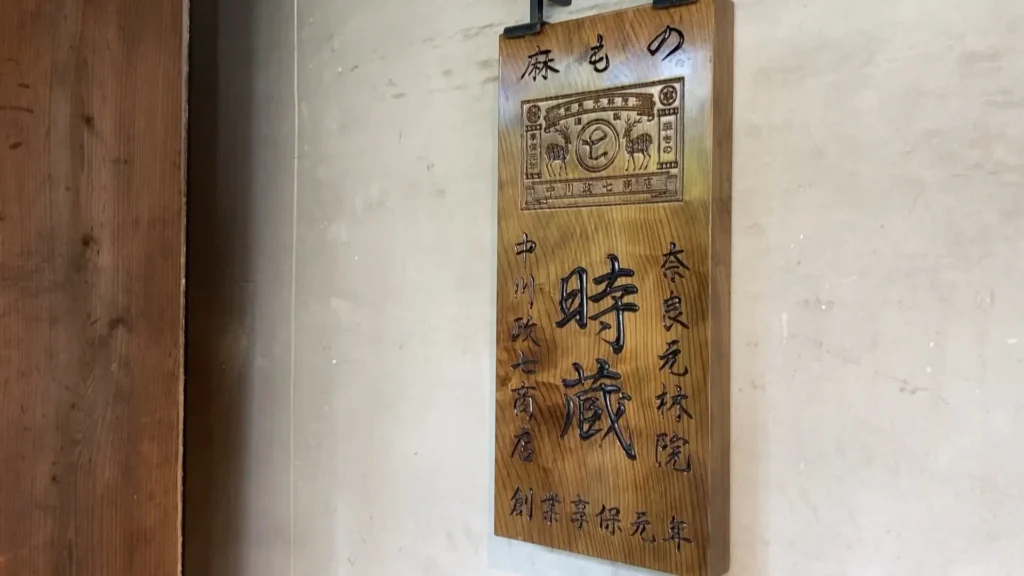 麻もの
七
中川政七商店
奈良元林院
時蔵
中川政七商店
創業享保元年